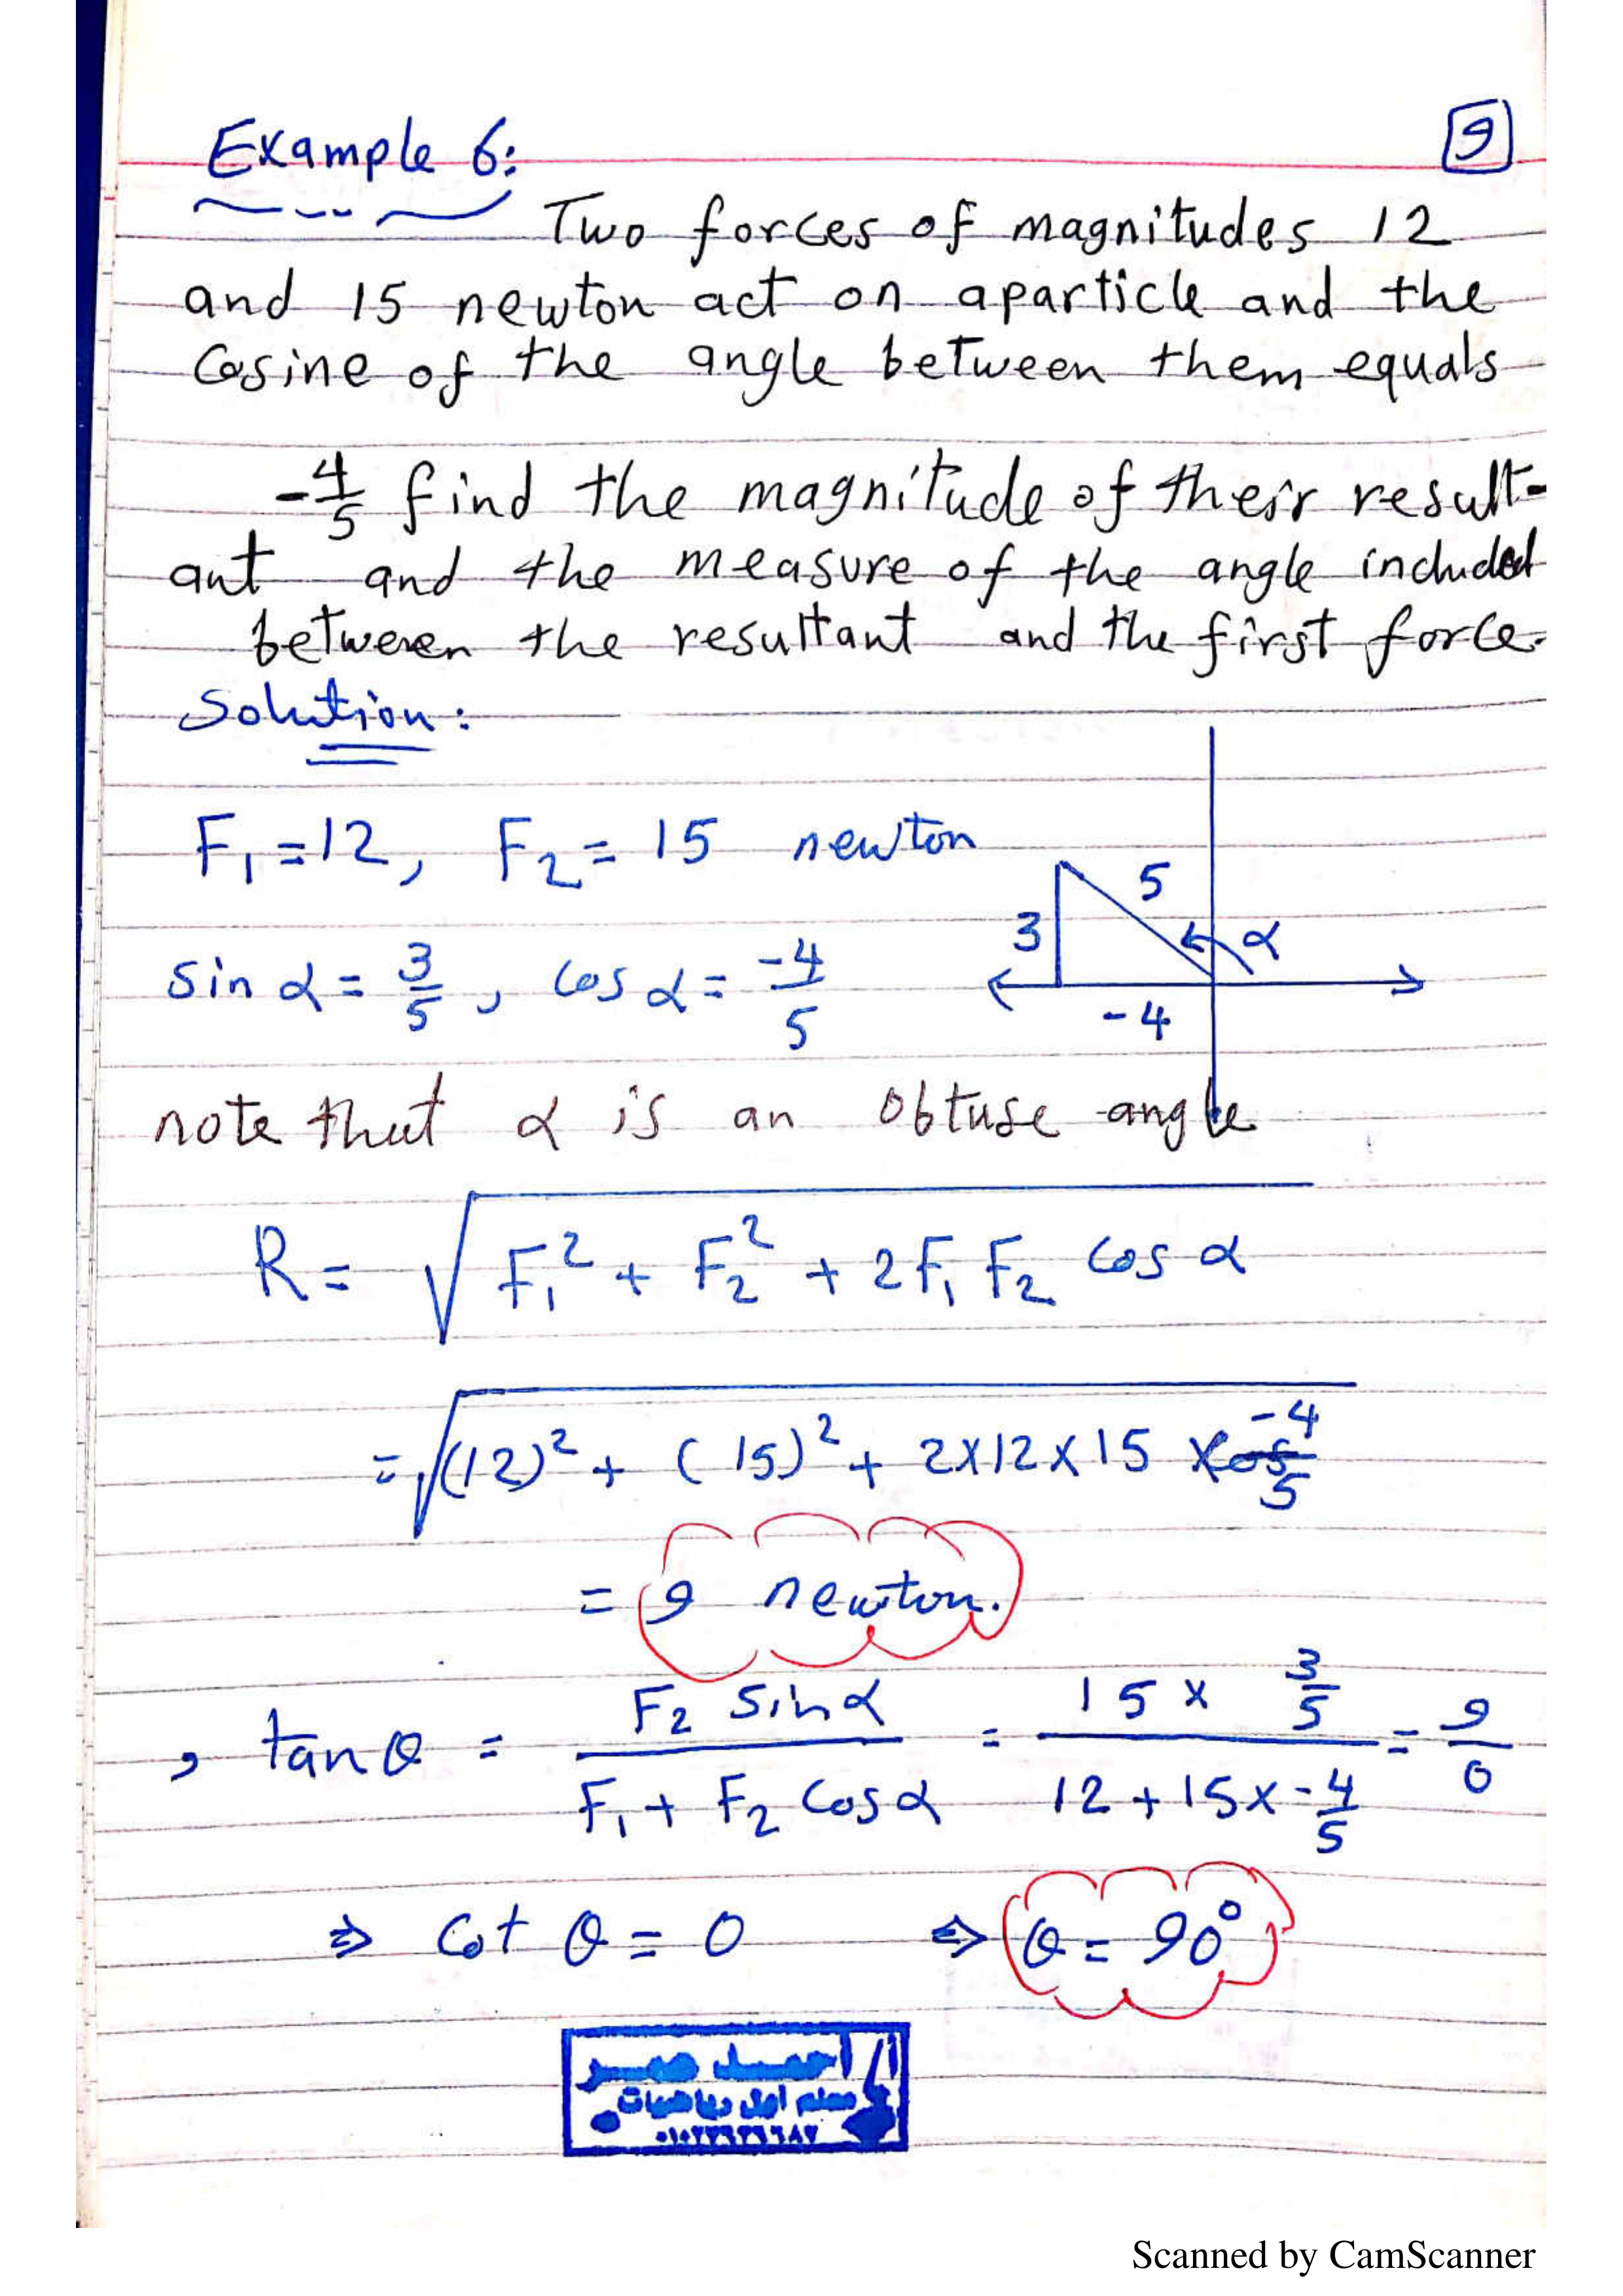 Example 6:
9
Two forces of magnitudes 12
and 15 newton act on aparticle and the
Cosine of the angle between them equals
-4/5 find the magnitude of their result-
ant and the measure of the angle included
between the resultant and the first force.
Solution:
F₁ = 12, F₂ = 15 newton
5
3
α
-4
sin α = 3/5 , cos α = -4/5
note that α is an obtuse angle
R = √(F₁² + F₂² + 2F₁F₂ cos α)
= √((12)² + (15)² + 2×12×15 × -4/5)
= 9 newton.
, tan θ = (F₂ sin α)/(F₁ + F₂ cos α) = (15 × 3/5)/(12 + 15 × -4/5) = 9/0
⇒ Cot θ = 0 ⇒ θ = 90°
أ/ أحمد عمر
معلم أول رياضيات
Scanned by CamScanner